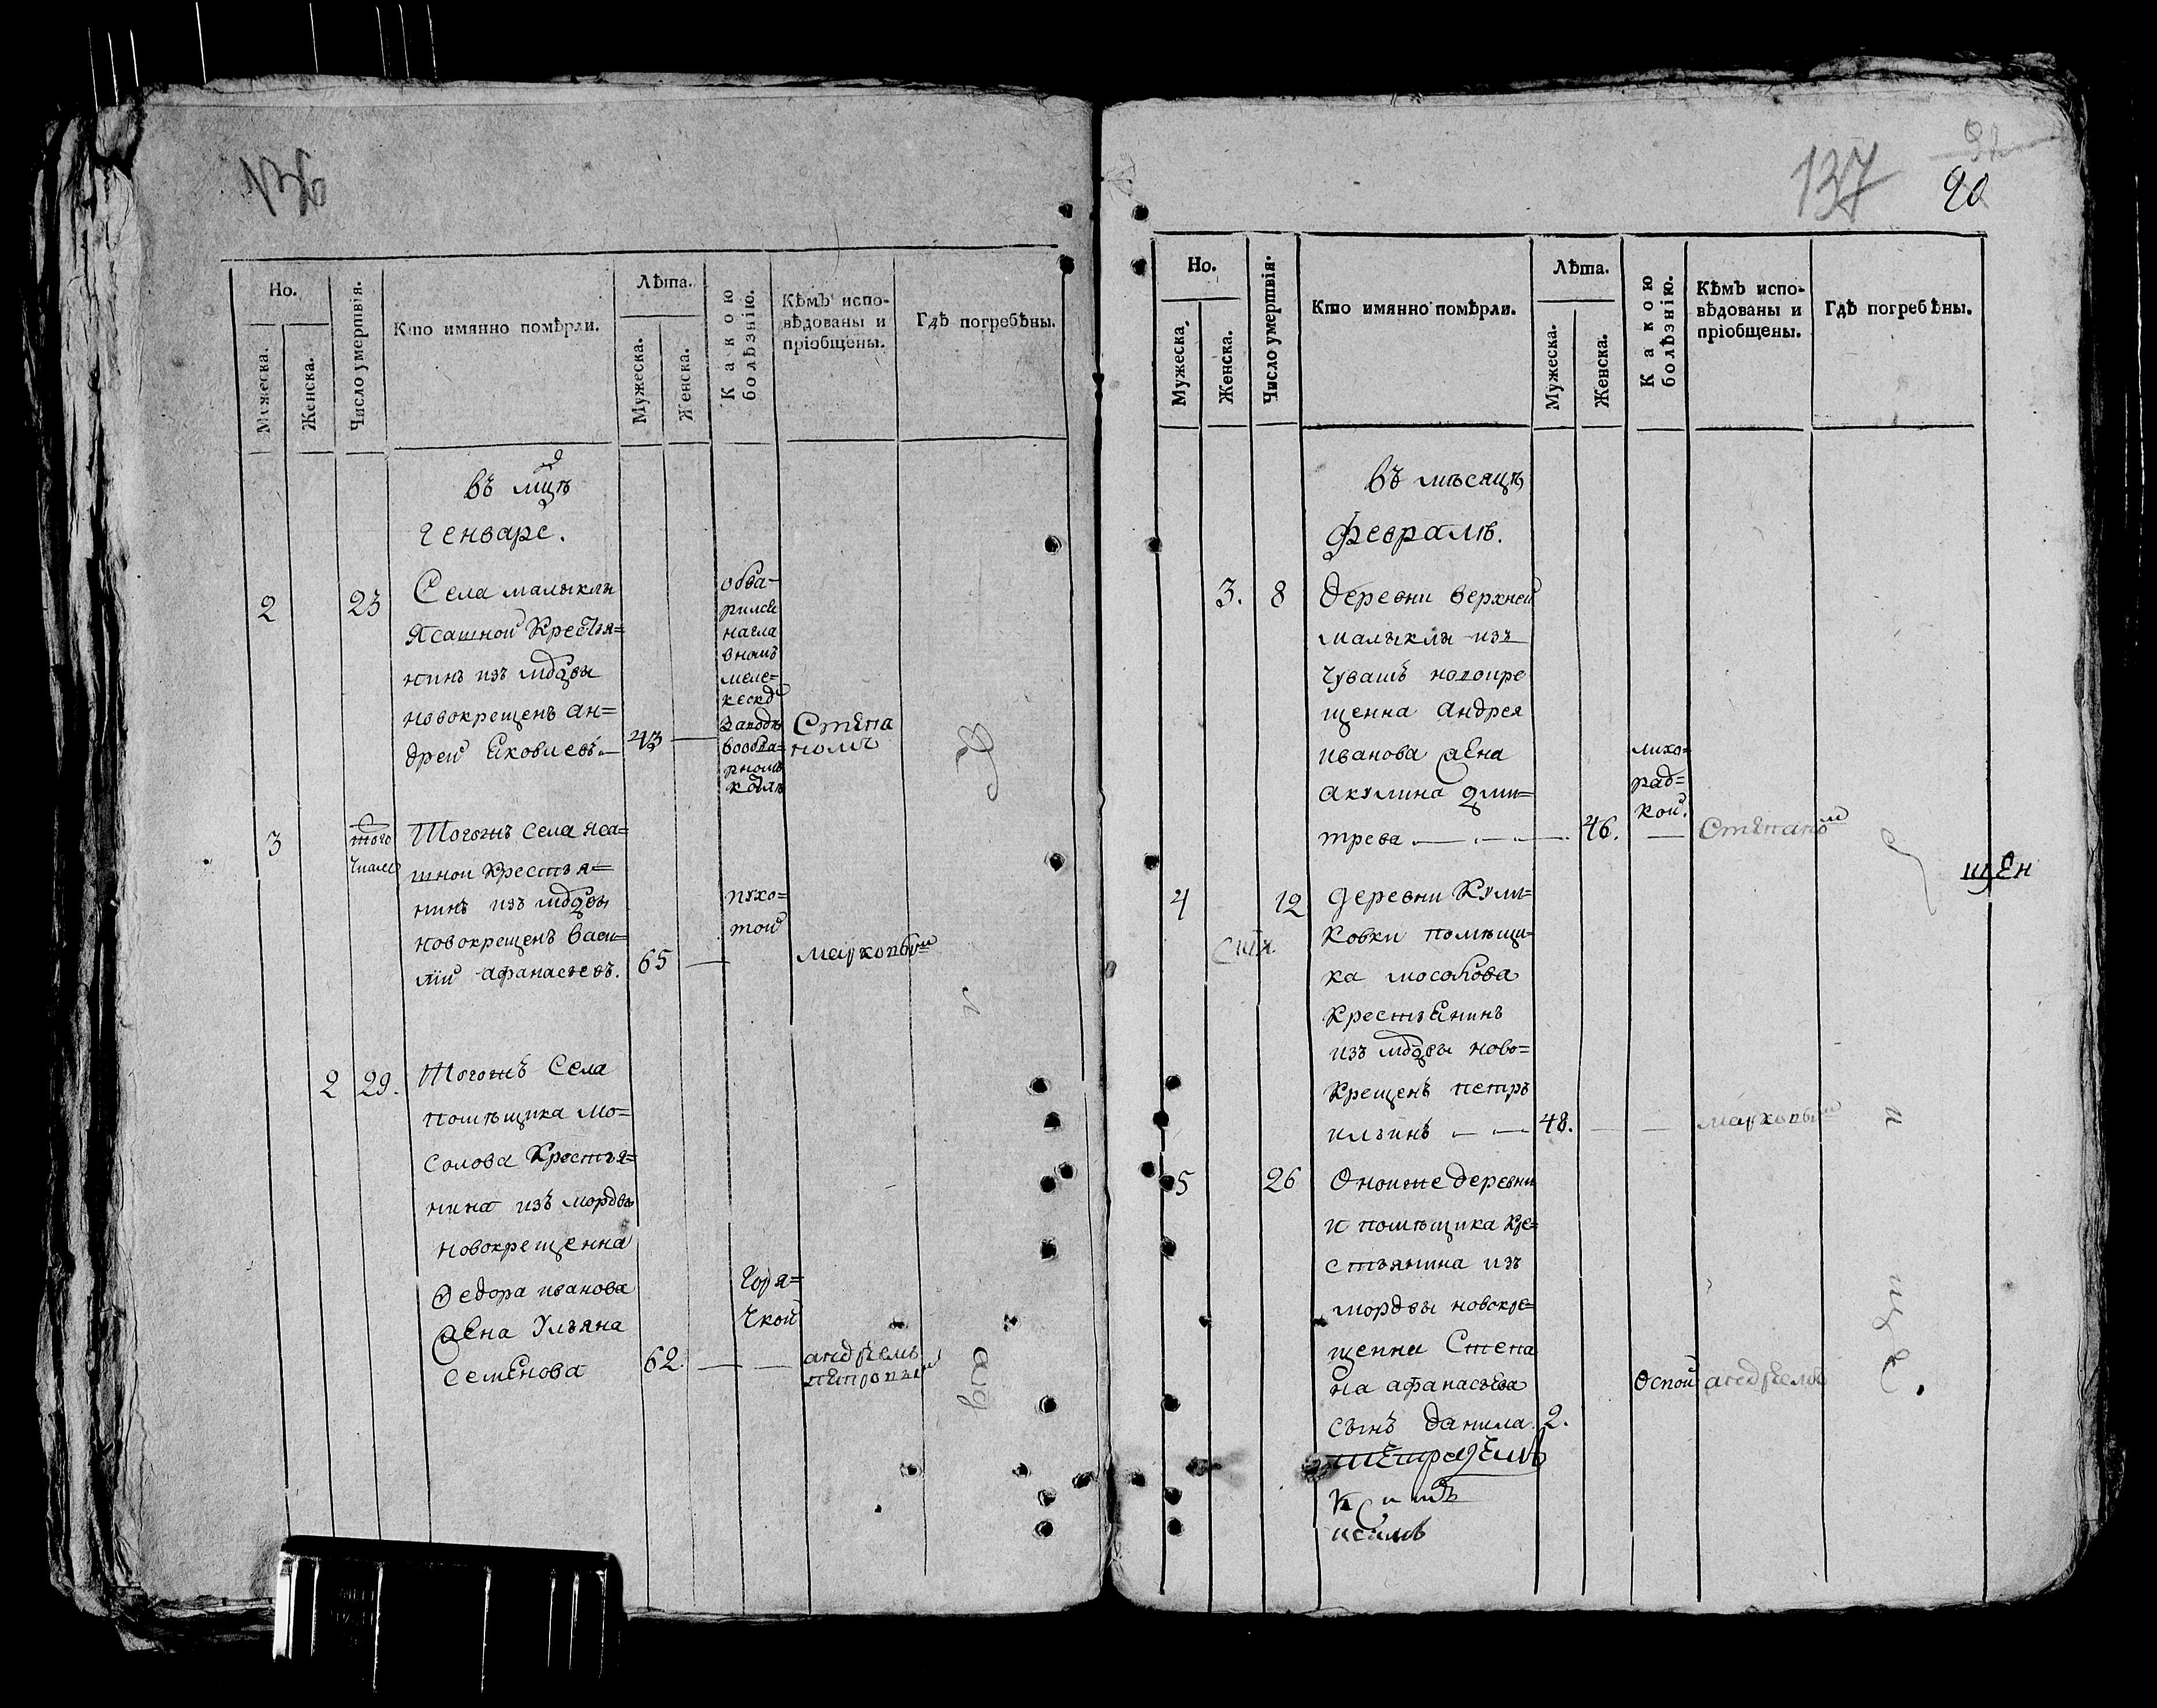 136
Но.
Мужеска.
Женска.
Число умертвія.
Кто имянно помѣрли.
Лѣта.
Мужеска.
Женска.
Какою болѣзнію.
Кѣмъ испо-
вѣдованы и
пріобщены.
Гдѣ погребѣны.
въ мцѣ
Генваре.
2 23 Села малыклы
ясашной Крестья=
нинъ изъ мордвы
новокрещенъ ан=
дрей Яковлевъ — 43 —
обва-
рился
на гла
вномъ
меле-
кеском
заводѣ
в овва=
рномъ
котлѣ
Степа
номъ
3 того
числа
Тогожъ села яса=
шнои Крестья=
нинъ изъ мордвы
новокрещенъ васи=
лій афанасьевъ. 65 —
пухо=
той
2 29. Тогожъ Села
помѣщика Мо=
солова Крестья=
нина изъ мордвы
новокрещенна
Ѳедора иванова
жена Ульяна
семенова 62. — —
Горя=
чкой
андреемъ
137
90
Но.
Мужеска.
Женска.
Число умертвія.
Кто имянно помѣрли.
Лѣта.
Мужеска.
Женска.
Какою болѣзнію.
Кѣмъ испо-
вѣдованы и
пріобщены.
Гдѣ погребѣны.
въ мѣсяцѣ
февралѣ.
3. 8 Деревни верхней
малыклы изъ
чувашъ новокре
щенна андрея
иванова жена
акулина дми=
трева — — — 46.
лихо=
рад=
кой.
— Степаном
4 12 Деревни Кули=
ковки помѣщи=
ка мосолова
крестьянинъ
изъ мордвы ново=
крещенъ петръ
ильинъ — — 48. — —
5 26 Оноиже деревни
и помѣщика кре=
стьянина изъ
мордвы новокре=
щенни Степа
на афанасьева
сынъ данила 2.
Оспой андреемъ
щен